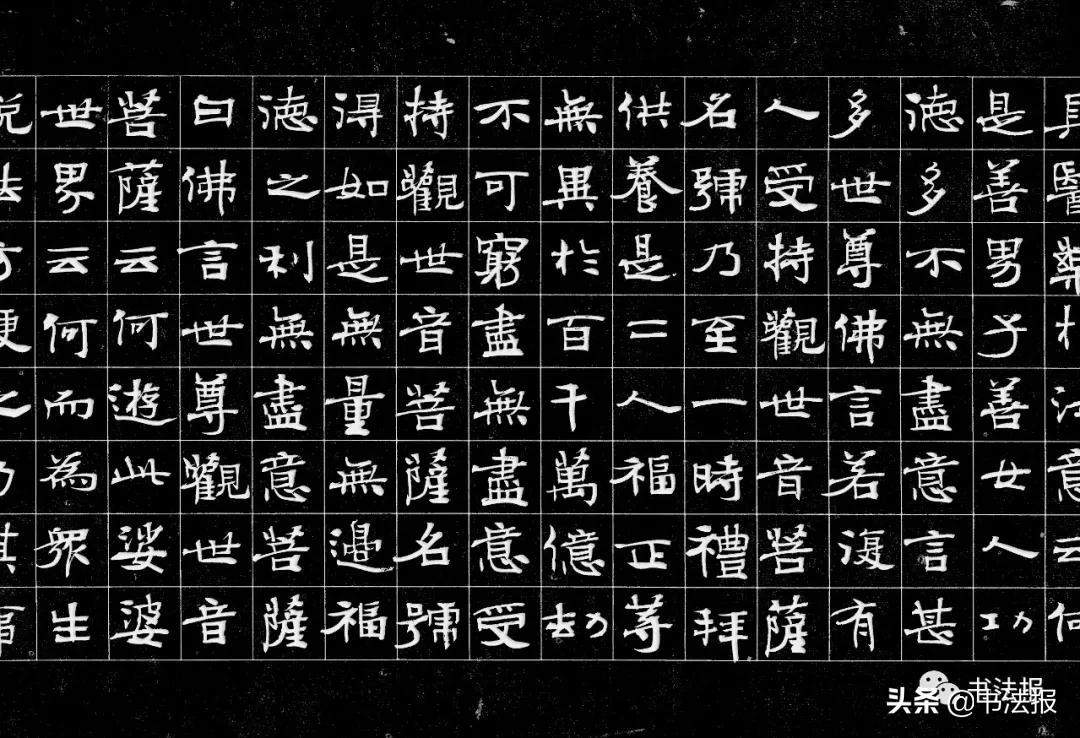 具醫藥於汝意云何
是善男子善女人功
德多不無盡意言甚
多世尊佛言若復有
人受持觀世音菩薩
名號乃至一時禮拜
供養是二人福正等
無異於百千萬億劫
不可窮盡無盡意受
持觀世音菩薩名號
得如是無量無邊福
德之利無盡意菩薩
白佛言世尊觀世音
菩薩云何遊此娑婆
世界云何而為眾生
說法方便之力其事
书法报
头条@书法报